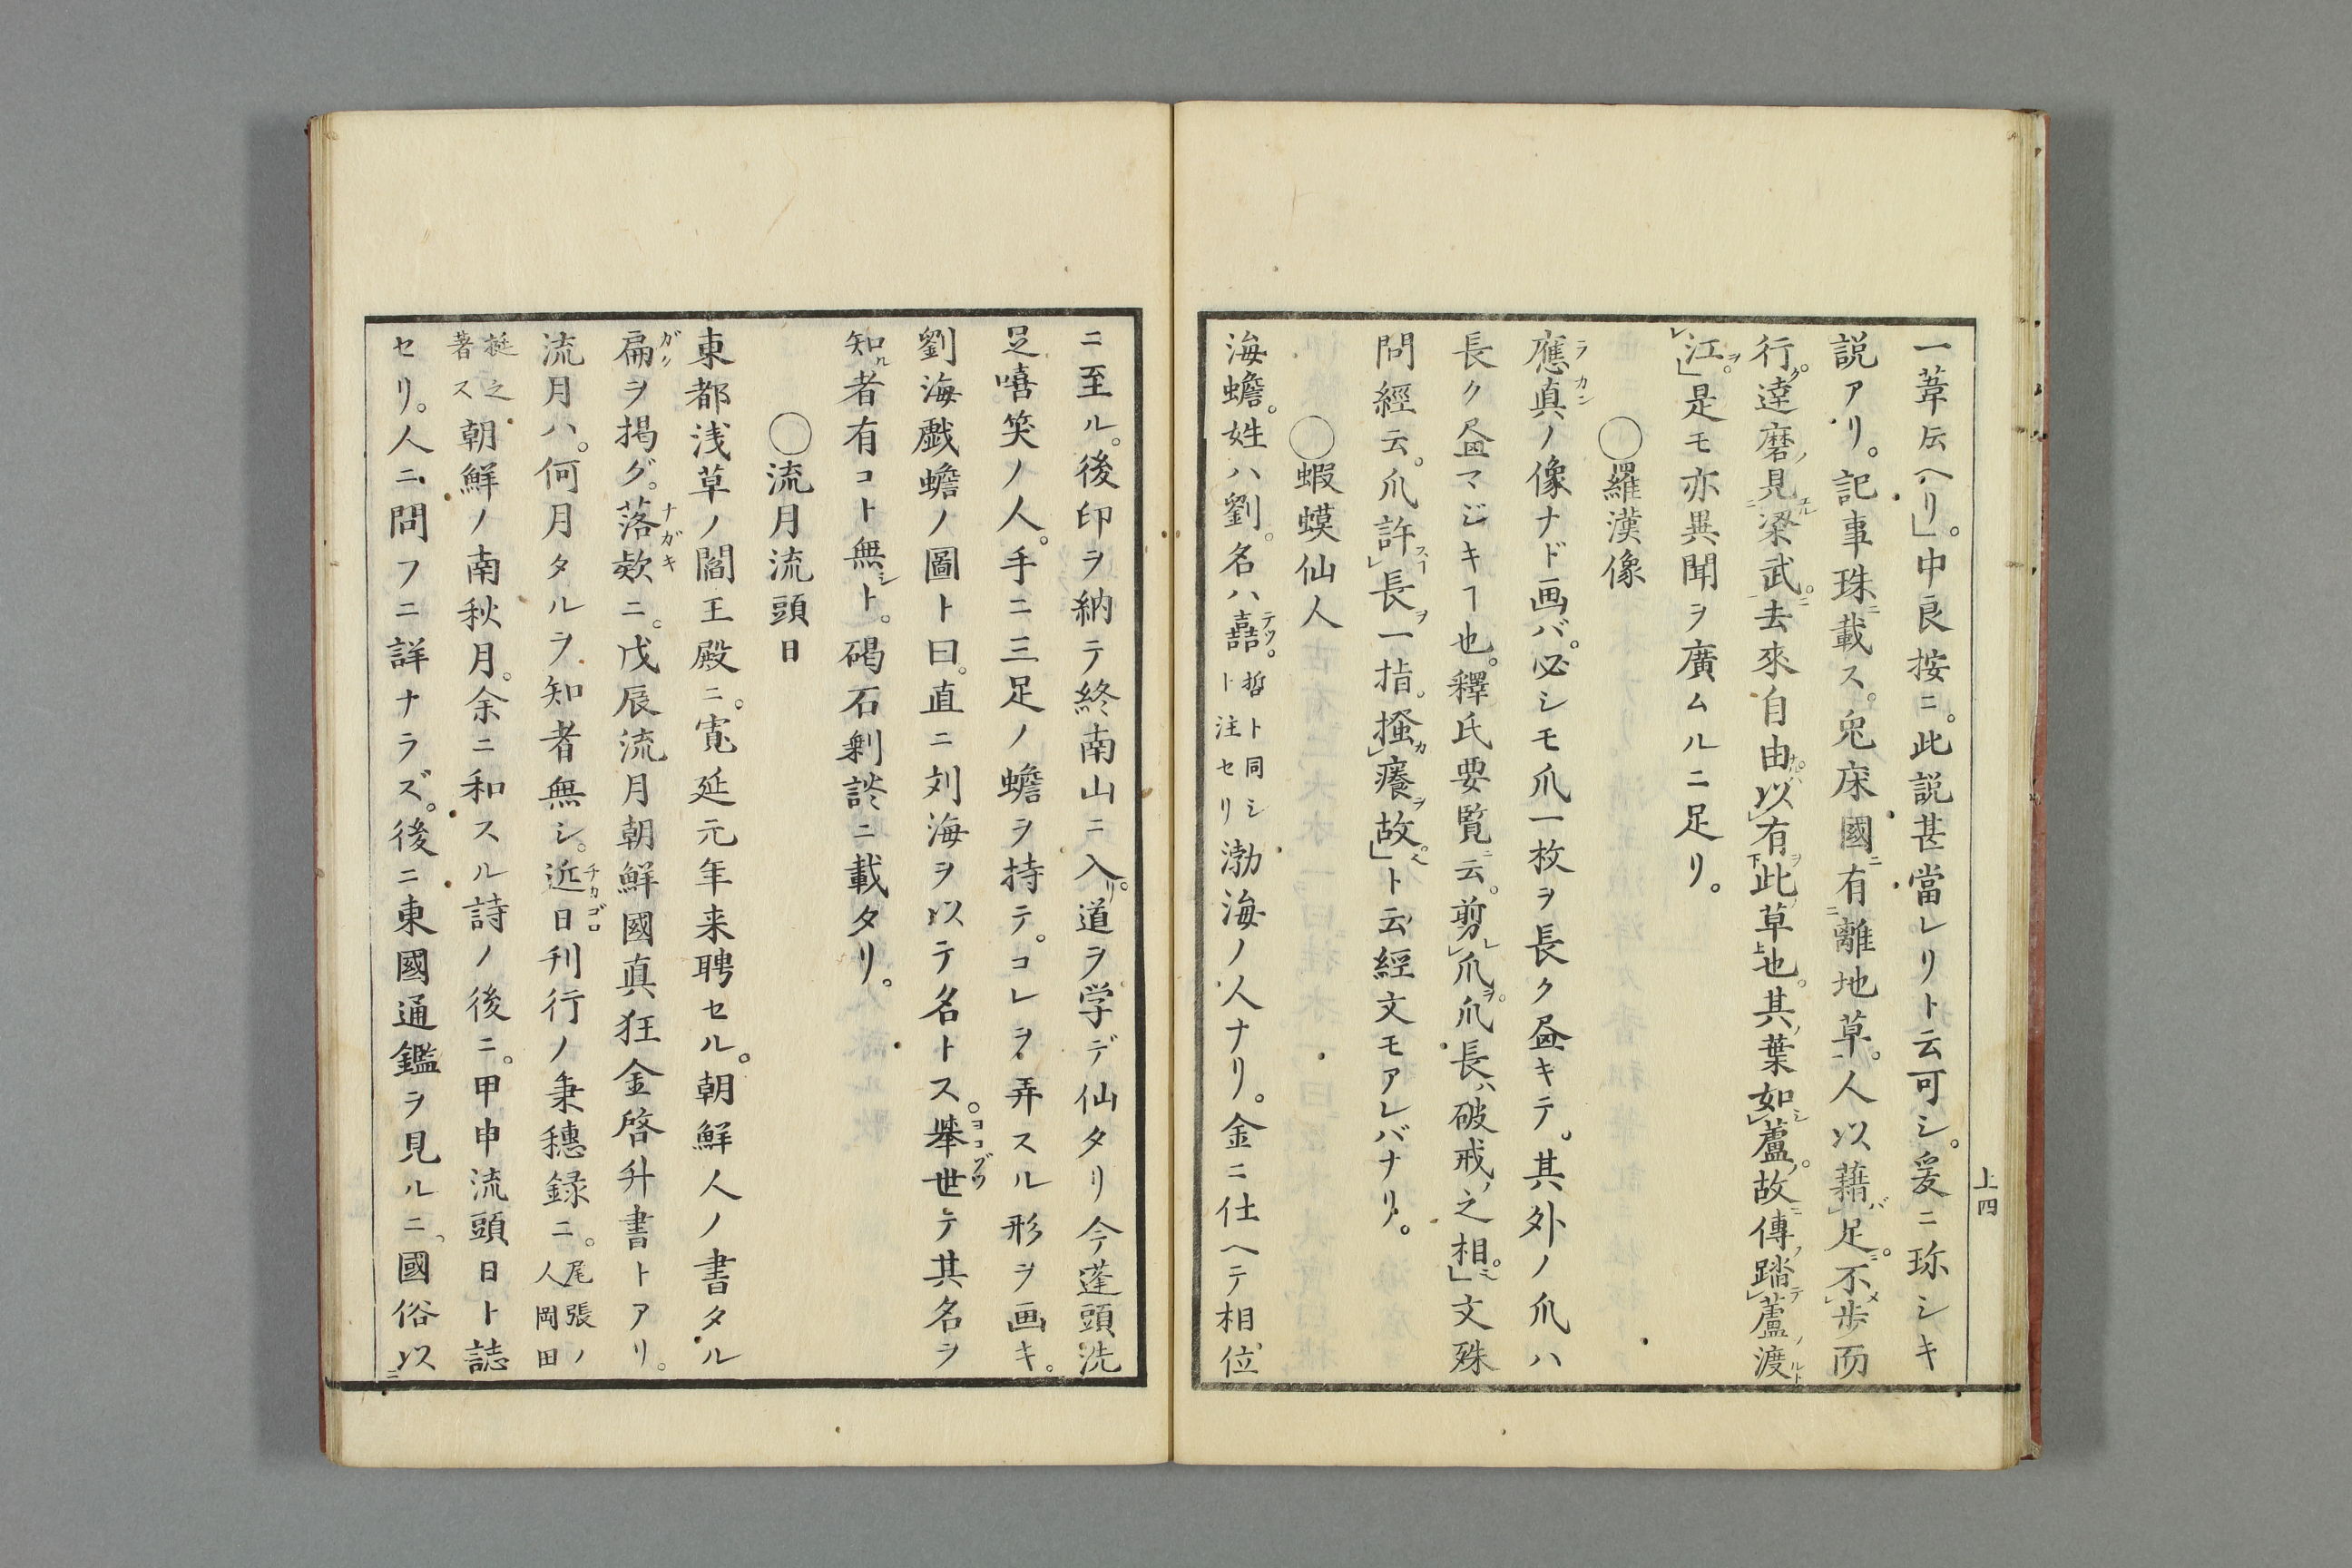 一葦伝ヘリ」。中良按ニ。此説甚當レリト云可シ。爰ニ珎シキ
説アリ。記事珠ニ載ス。兜床國ニ有離地草。人以藉足。不歩而
行。達磨見梁武。去來自由。以有此草也。其葉如蘆。故傳踏蘆渡
江。」是モ亦異聞ヲ廣ムルニ足リ。
○羅漢像
應真ノ像ナド画バ。必シモ爪一枚ヲ長ク畫キテ。其外ノ爪ハ
長ク畫マジキヿ也。釋氏要覧云。剪爪。爪長ハ破戒之相」。文殊
問經云。爪許長一指。掻癢故」ト云經文モアレバナリ。
○蝦蟆仙人
海蟾。姓ハ劉。名ハ嚞。哲ト同シト注セリ渤海ノ人ナリ。金ニ仕ヘテ相位
上四
ニ至ル。後印ヲ納テ終南山ニ入リ。道ヲ学デ仙タリ今蓬頭洗
足嘻笑ノ人。手ニ三足ノ蟾ヲ持テ。コレヲ弄スル形ヲ画キ。
劉海戯蟾ノ圖ト曰。直ニ刘海ヲ以テ名トス。舉世テ其名ヲ
知ル者有コト無シト。碣石剰談ニ載タリ。
○流月流頭日
東都浅草ノ閻王殿ニ。寛延元年来聘セル。朝鮮人ノ書タル
扁ヲ掲グ。落欵ニ。戊辰流月朝鮮國真狂金啓升書トアリ。
流月ハ。何月タルヲ知者無シ。近日刊行ノ秉穗録ニ。尾張ノ人岡田
挺之著ス朝鮮ノ南秋月。余ニ和スル詩ノ後ニ。甲申流頭日ト誌
セリ。人ニ問フニ詳ナラズ。後ニ東國通鑑ヲ見ルニ。國俗以